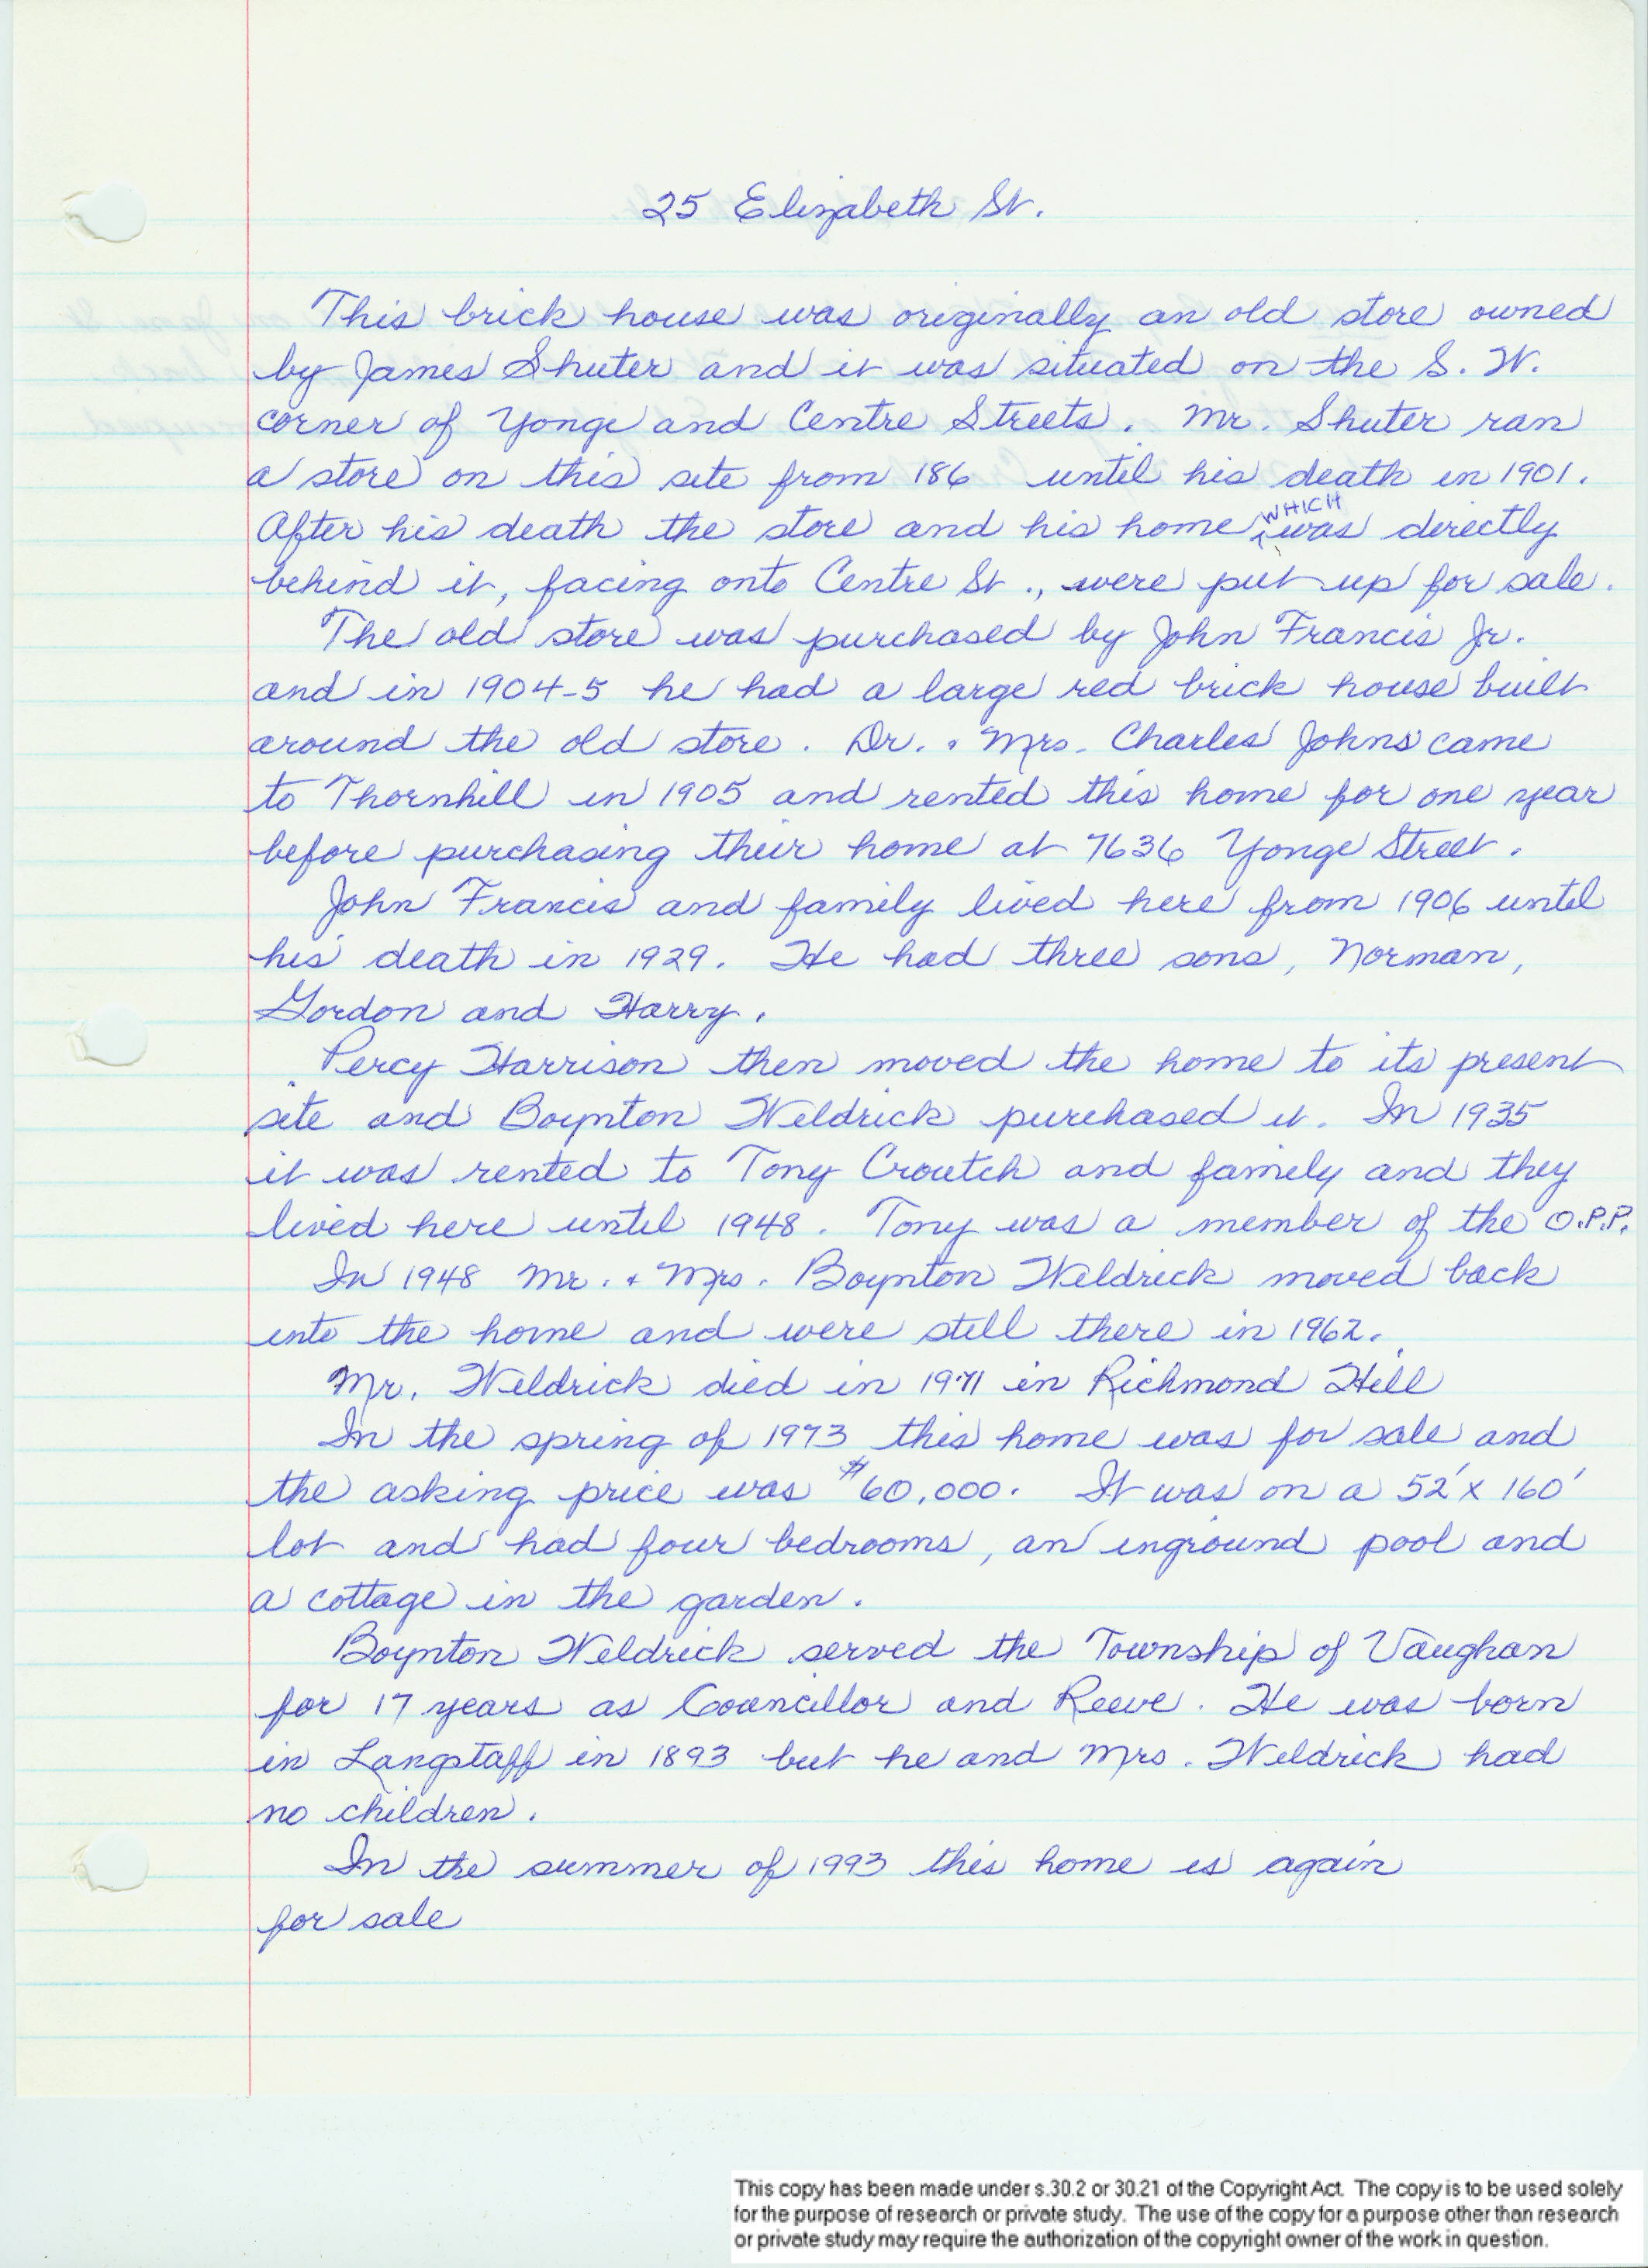 25 Elizabeth St.
This brick house was originally an old store owned
by James Shuter and it was situated on the S. W.
corner of Yonge and Centre Streets. Mr. Shuter ran
a store on this site from 186   until his death in 1901.
After his death the store and his home, WHICH was directly
behind it, facing onto Centre St., were put up for sale.
The old store was purchased by John Francis Jr.
and in 1904-5 he had a large red brick house built
around the old store. Dr. & Mrs. Charles Johns came
to Thornhill in 1905 and rented this home for one year
before purchasing their home at 7636 Yonge Street.
John Francis and family lived here from 1906 until
his death in 1929. He had three sons, Norman,
Gordon and Harry.
Percy Harrison then moved the home to its present
site and Boynton Weldrick purchased it. In 1935
it was rented to Tony Croutch and family and they
lived here until 1948. Tony was a member of the O.P.P.
In 1948 Mr. & Mrs. Boynton Weldrick moved back
into the home and were still there in 1962.
Mr. Weldrick died in 1971 in Richmond Hill
In the spring of 1973 this home was for sale and
the asking price was $60,000. It was on a 52' x 160'
lot and had four bedrooms, an inground pool and
a cottage in the garden.
Boynton Weldrick served the Township of Vaughan
for 17 years as Councillor and Reeve. He was born
in Langstaff in 1893 but he and Mrs. Weldrick had
no children.
In the summer of 1993 this home is again
for sale
This copy has been made under s.30.2 or 30.21 of the Copyright Act. The copy is to be used solely
for the purpose of research or private study. The use of the copy for a purpose other than research
or private study may require the authorization of the copyright owner of the work in question.